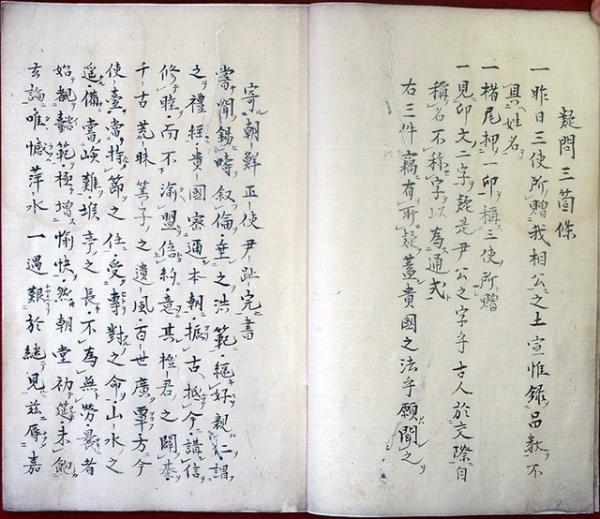 疑問三箇條
一昨日三使所贈我相公之土宣惟錄品數不
具姓名
一楮尾押一印稱三使所贈
一見印文二字疑是尹公之字乎古人於交際自
稱名不稱字以為通式
右三件竊有所疑蓋貴國之法乎願聞之
寄朝鮮正使尹趾完書
嘗聞錫疇叙倫垂之洪範繩好親仁謂
之禮經貴國密通本朝振古抵今講信
修睦而不渝盟信約意其檀君之闢基
千古荒昧箕子之遺風百世廣覃方今
使臺當持節之任受專對之命山水之
遥備嘗嶮難堠亭之長不為無勞曩者
始觀懿範極增愉快然朝堂初筵未飽
玄論唯憾萍水一遇艱於繼見茲辱嘉